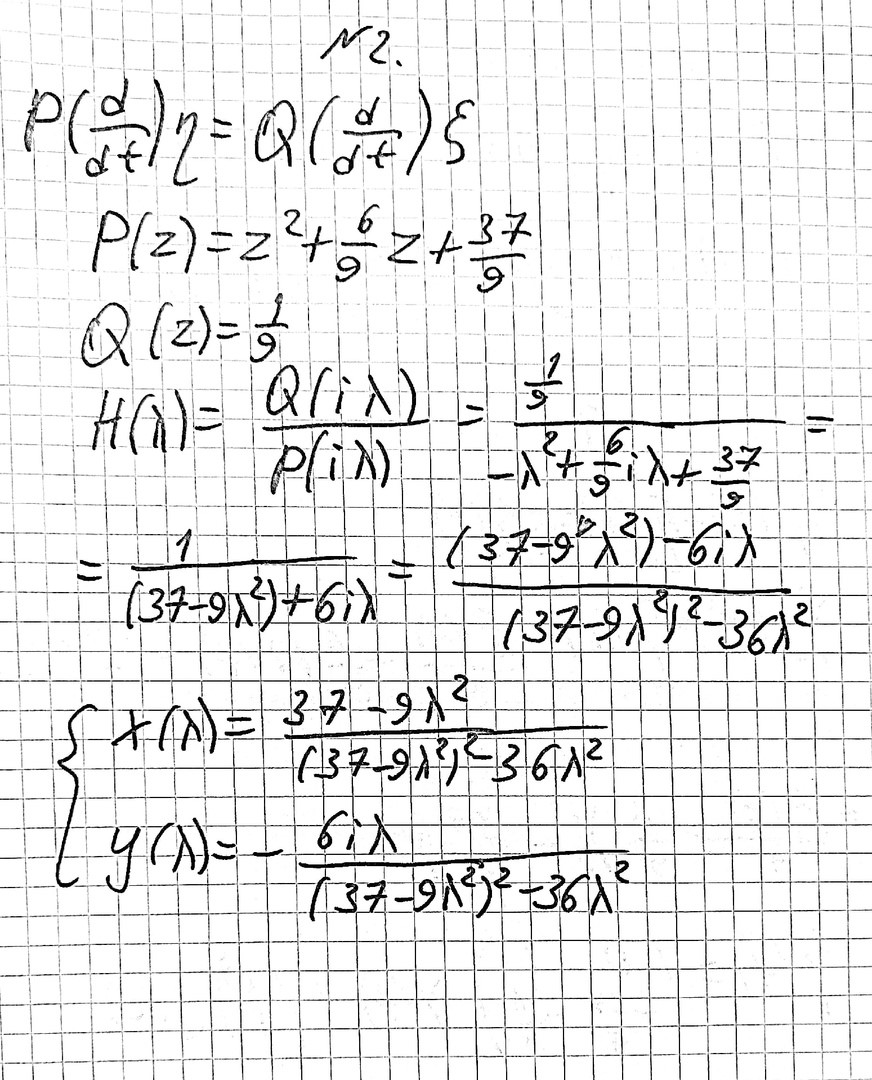 N2.
P(d/dt)η = Q(d/dt)ξ
P(z) = z² + 6/9 z + 37/9
Q(z) = 1/9
H(λ) = Q(iλ)/P(iλ) = (1/9)/(-λ² + 6/9 iλ + 37/9) =
= 1/((37-9λ²)+6iλ) = ((37-9λ²)-6iλ)/((37-9λ²)²-36λ²)
{ x(λ) = (37-9λ²)/((37-9λ²)²-36λ²)
y(λ) = - 6iλ/((37-9λ²)²-36λ²)